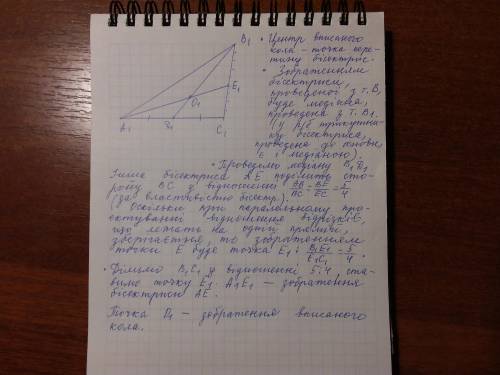 B₁
E₁
O₁
A₁ D₁ C₁
• Центр вписаного
кола – точка пере-
тину бісектрис.
• Зображенням
бісектриси,
проведеної з т. B,
буде медіана,
проведена з т. B₁
(у р/б трикутни-
ку бісектриса,
проведена до основи
є і медіаною).
• Проведемо медіану B₁D₁
Інша бісектриса AE поділить сто-
рону BC у відношенні (AB/AC = BE/EC = 5/4
(за властивістю бісектр.).
Оскільки при паралельному про-
ектуванні відношення відрізків,
що лежать на одній прямій,
зберігається, то зображенням
точки E буде точка E₁ : B₁E₁/E₁C₁ = 5/4.
• Ділимо B₁C₁ у відношенні 5:4, ста-
вимо точку E₁. A₁E₁ – зображення
бісектриси AE.
Точка O₁ – зображення вписаного
кола.